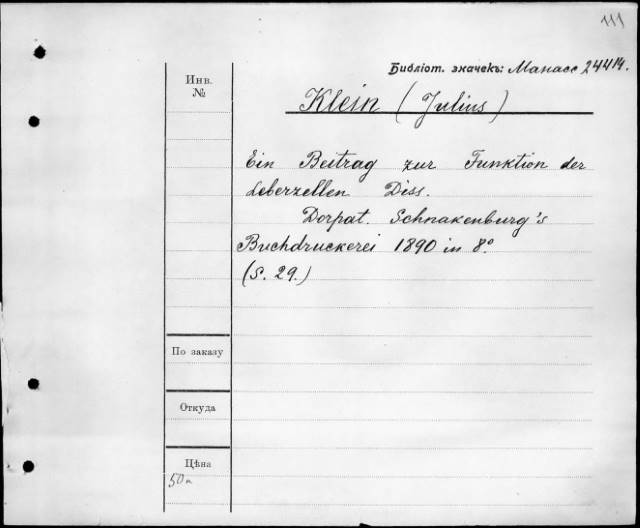 111
Библіот. значекъ: Манасс 24414.
Инв.
№
Klein (Julius)
Ein Beitrag zur Funktion der
Leberzellen Diss.
Dorpat. Schnakenburg's
Buchdruckerei 1890 in 8º
(S. 29.)
По заказу
Откуда
Цѣна
50к